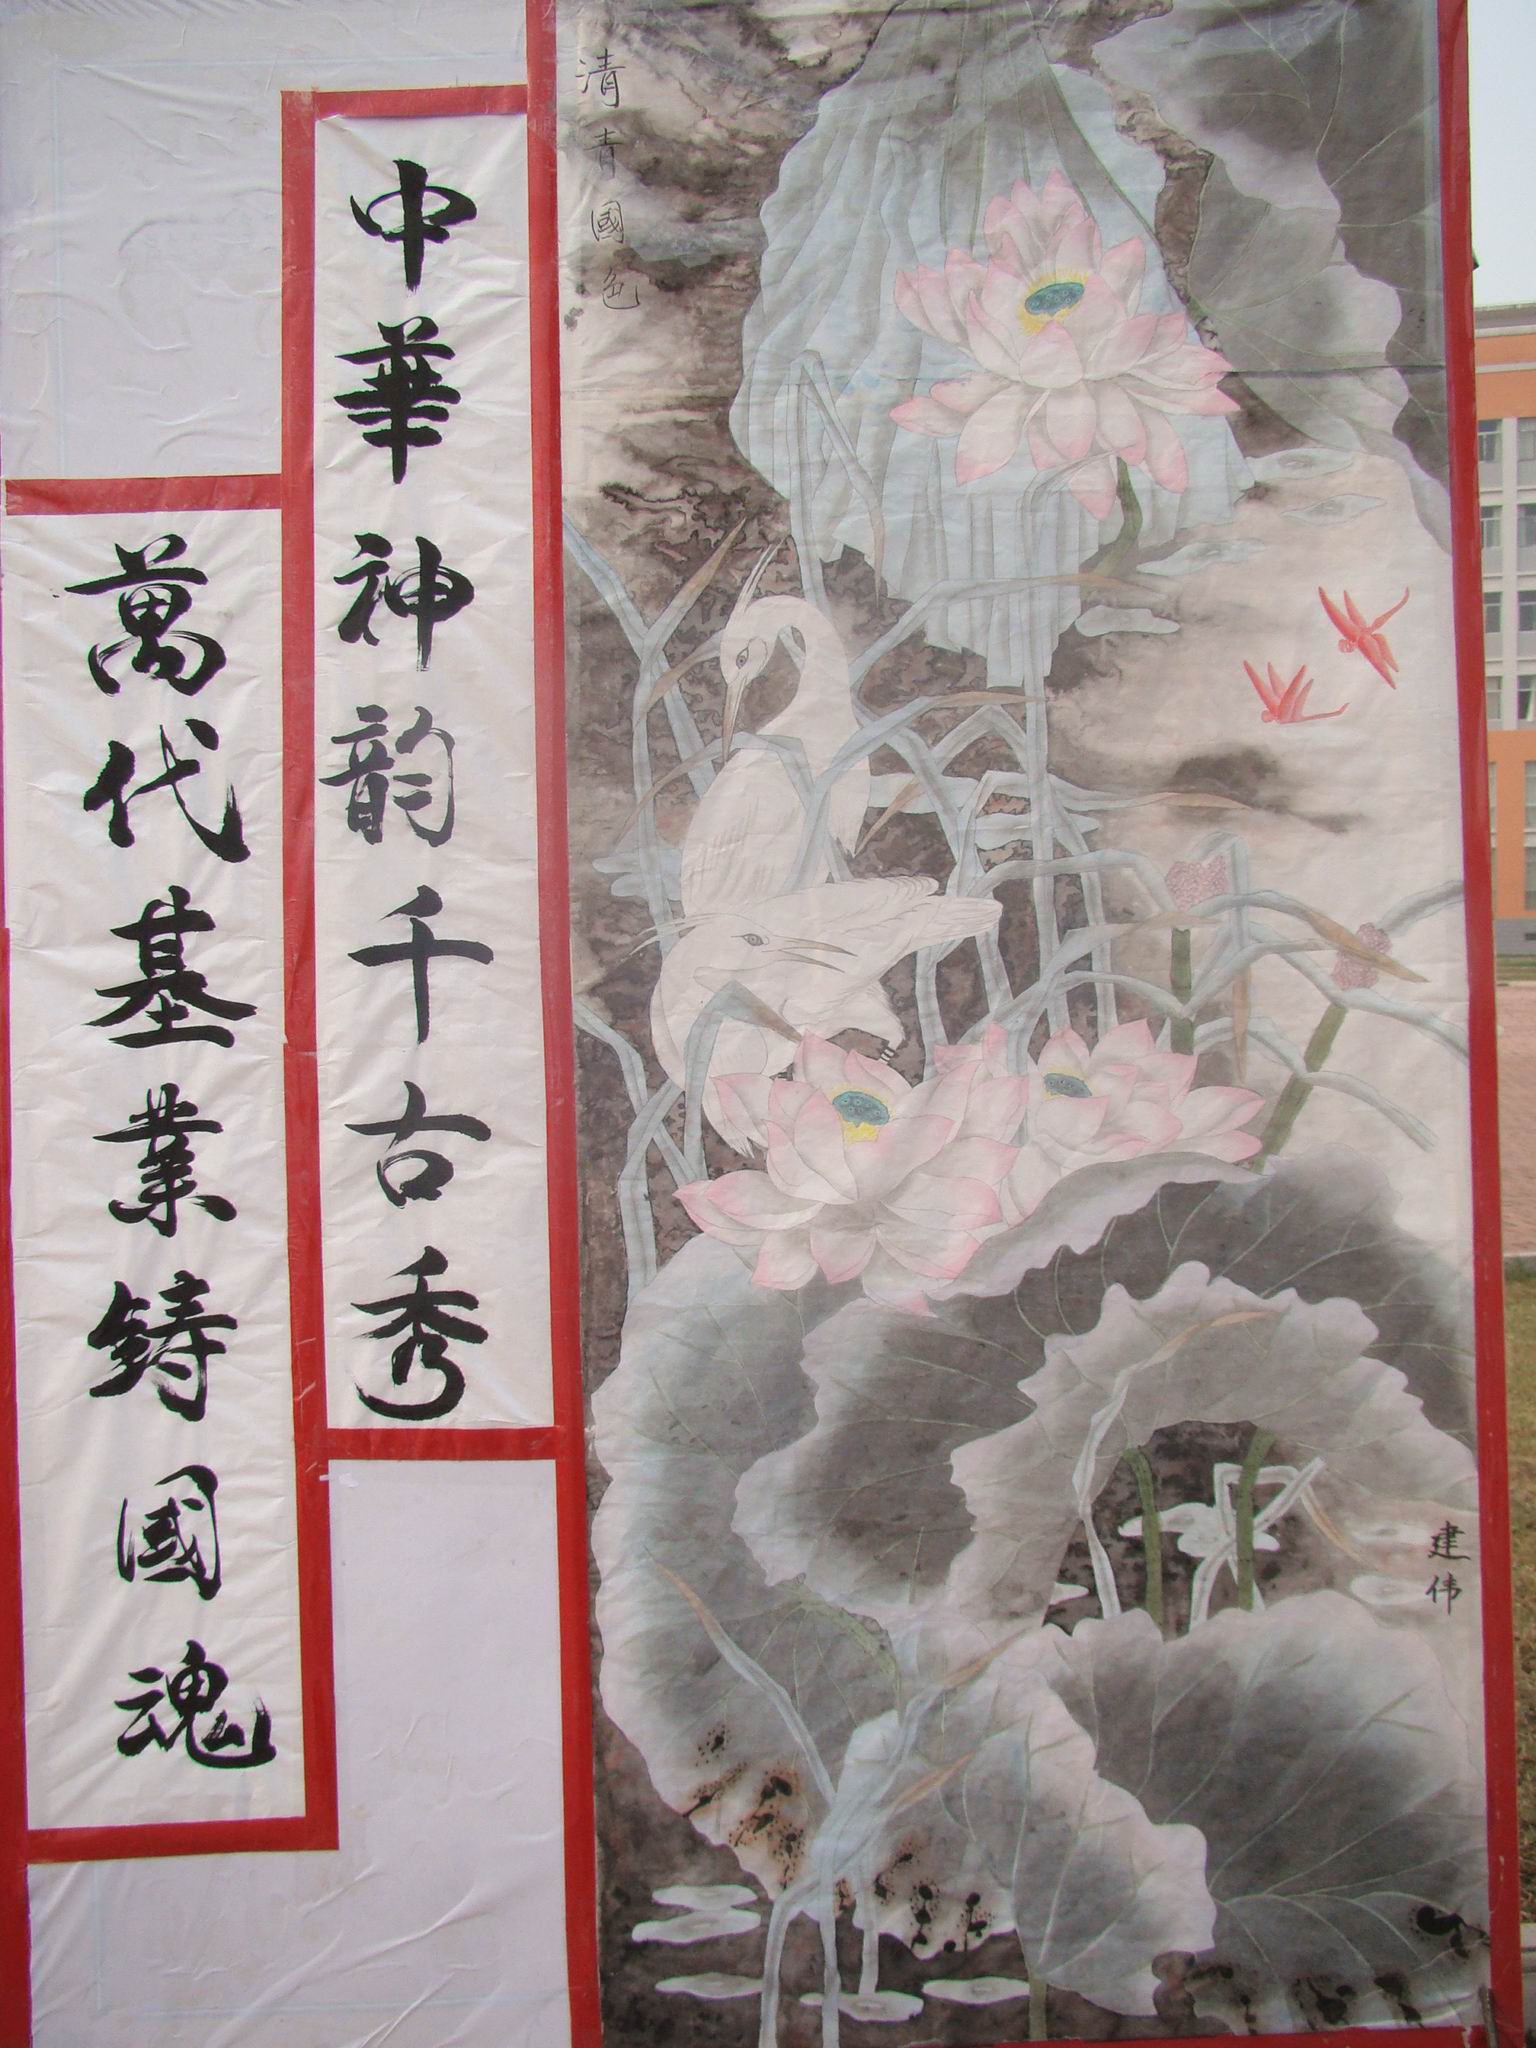 清青國色
建伟
中華神韵千古秀
萬代基業鋳國魂